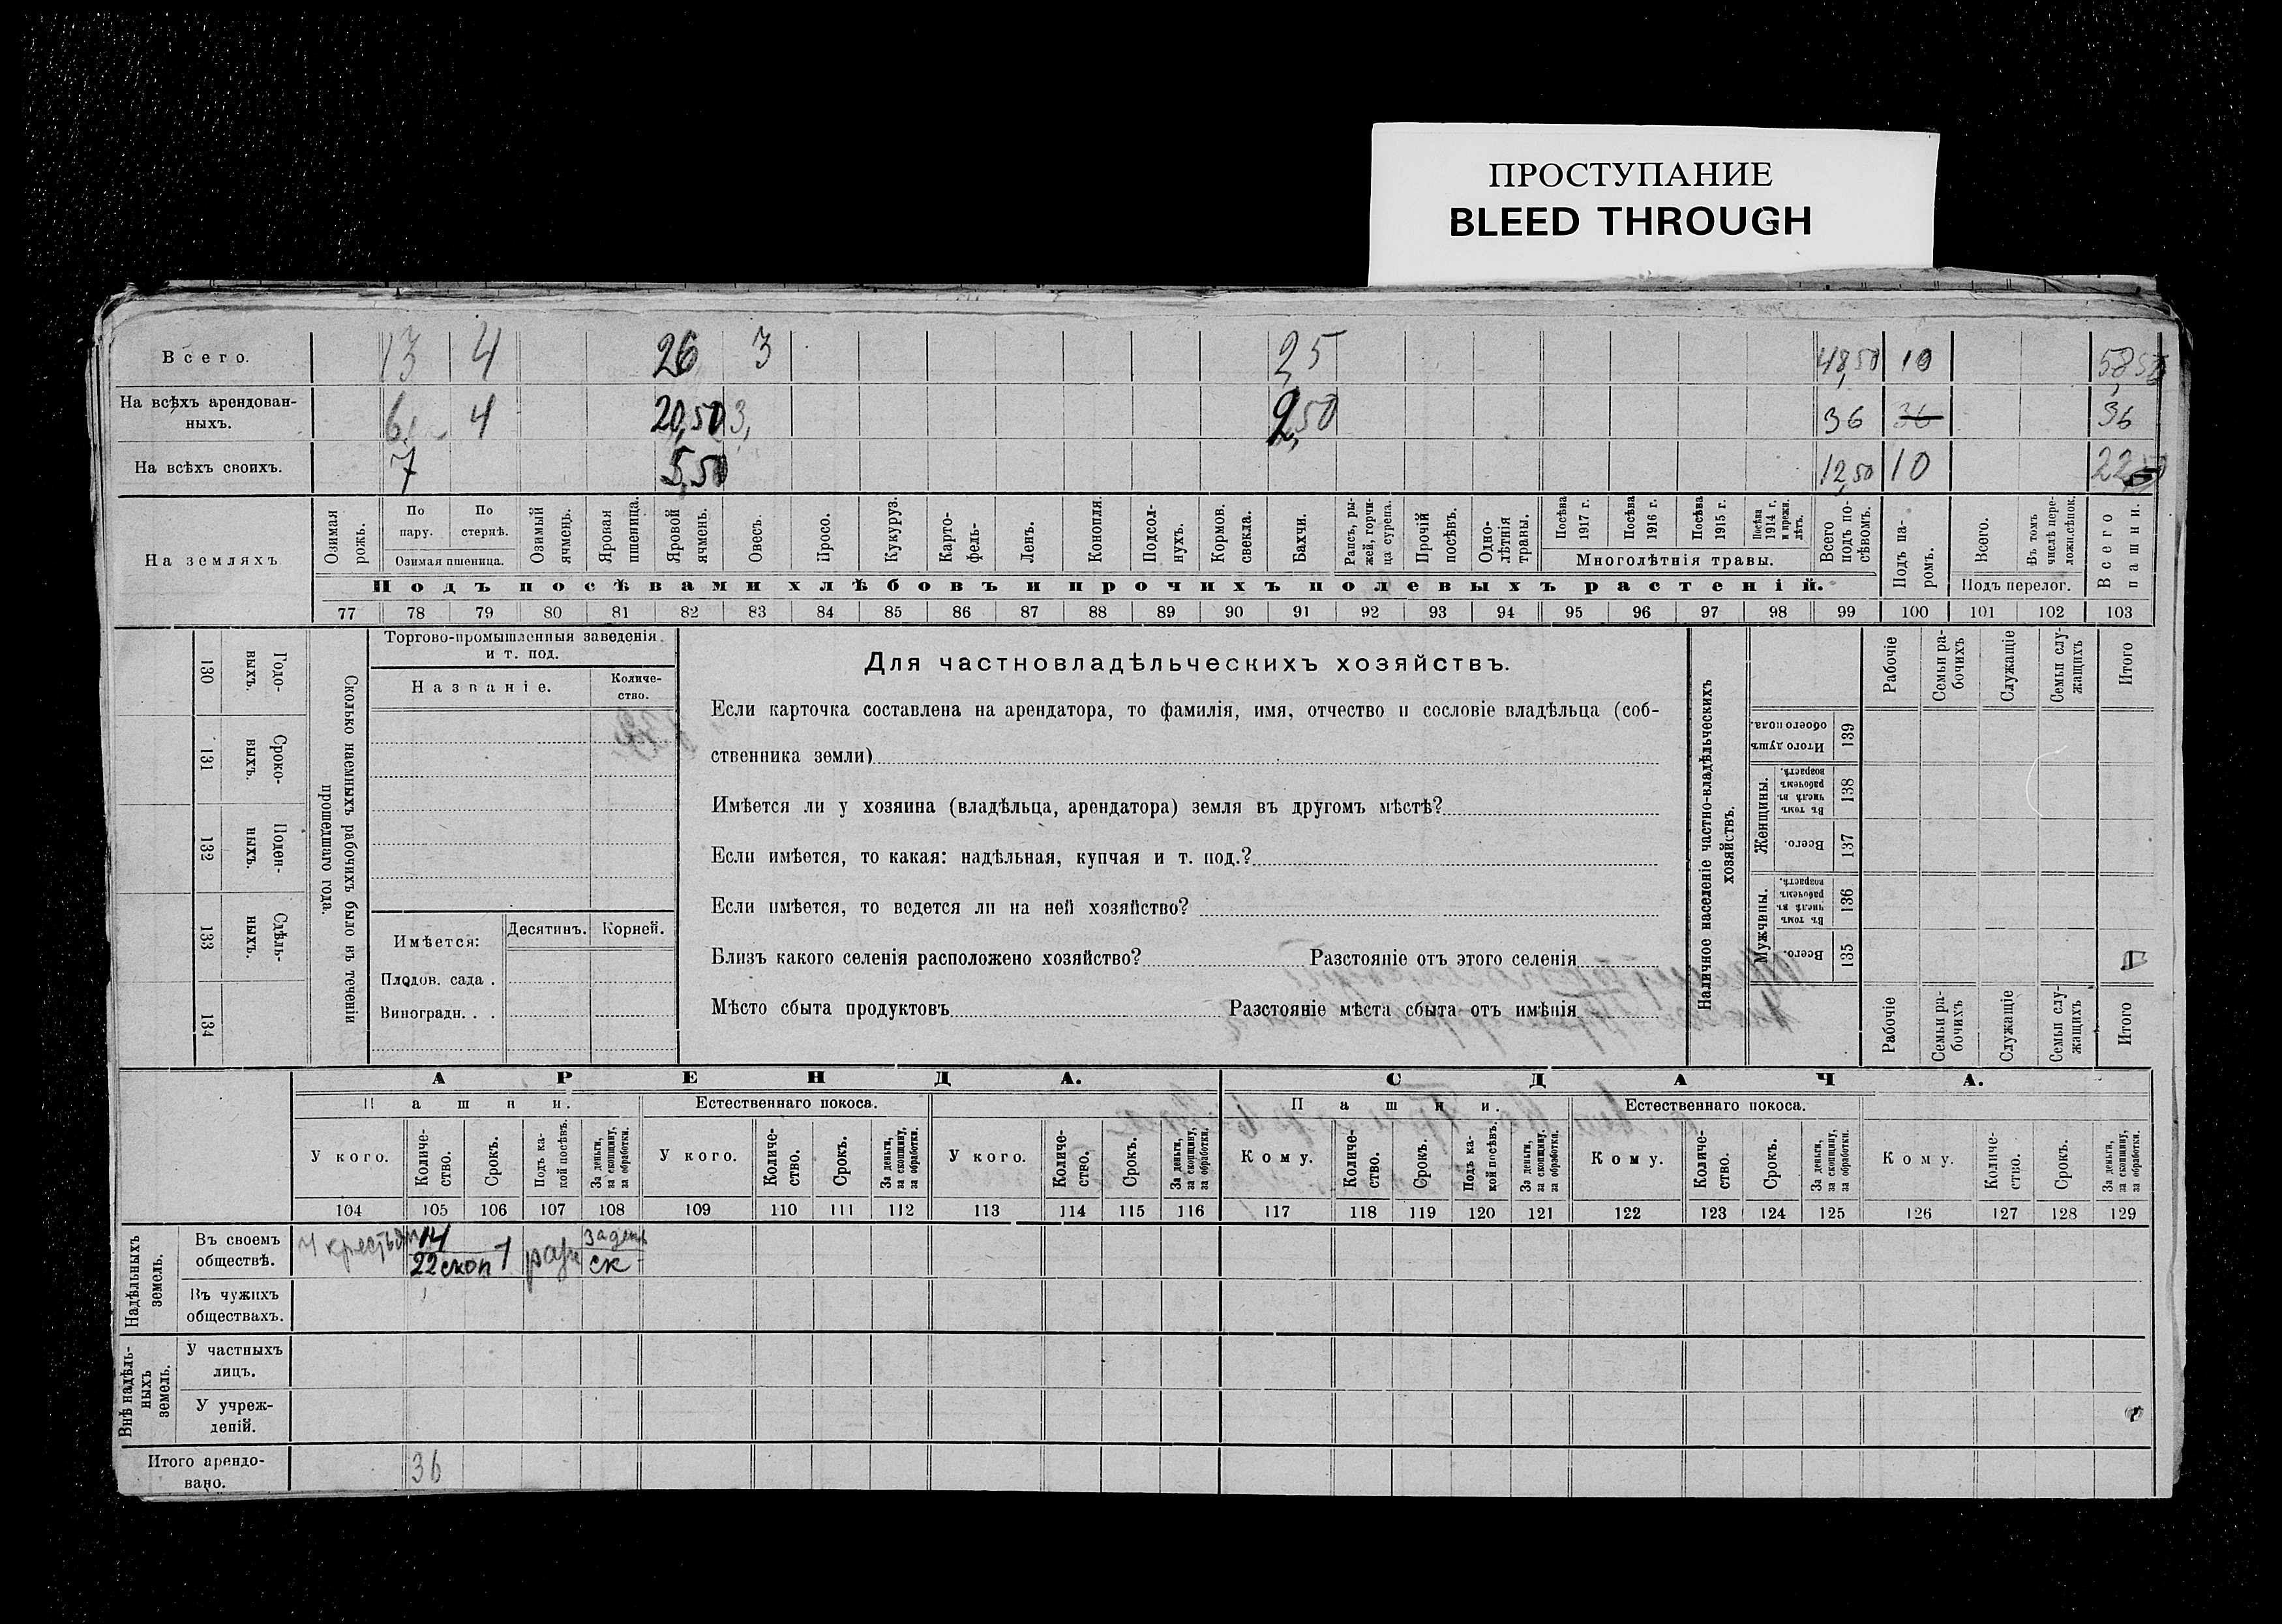 ПРОСТУПАНИЕ
BLEED THROUGH
Всего. 13 4 26 3 2,5 48,50 10 58,50
На всѣхъ арендован-
ныхъ. 6 4 20,50 3, 2,50 36 36 36
На всѣхъ своихъ. 7 5,50 12,50 10 22,50
На земляхъ
Озимая рожь.
По пару.
По стернѣ.
Озимая пшеница.
Озимый ячмень.
Яровая пшеница.
Яровой ячмень.
Овесъ.
Просо.
Кукуруз.
Карто-
фель-
Ленъ.
Конопля.
Подсол-
нухъ.
Кормов.
свекла.
Бахчи.
Рапсъ, ры-
жей, горчи-
ца сурепа.
Прочій
посѣвъ.
Одно-
лѣтнія
травы.
Посѣва 1917 г.
Посѣва 1916 г.
Посѣва 1915 г.
Посѣва 1914 г. и прежн. лѣтъ.
Многолѣтнія травы.
Всего
подъ по-
сѣвомъ.
Подъ па-
ромъ.
Всего.
Въ томъ
числѣ пере-
ложн.сѣнок.
Подъ перелог.
Всего
пашни.
Подъ посѣвами хлѣбовъ и прочихъ полевыхъ растеній.
77 78 79 80 81 82 83 84 85 86 87 88 89 90 91 92 93 94 95 96 97 98 99 100 101 102 103
Сколько наемныхъ рабочихъ было въ теченіи
прошедшаго года.
Годо-
выхъ.
130
Сроко-
выхъ.
131
Поден-
ныхъ.
132
Сдѣль-
ныхъ.
133
134
Торгово-промышленныя заведенія
и т. под.
Названіе.
Количе-
ство.
Имѣется: Десятинъ. Корней.
Плодов. сада .
Виноградн. . .
Для частновладѣльческихъ хозяйствъ.
Если карточка составлена на арендатора, то фамилія, имя, отчество и сословіе владѣльца (соб-
ственника земли)
Имѣется ли у хозяина (владѣльца, арендатора) земля въ другомъ мѣстѣ?
Если имѣется, то какая: надѣльная, купчая и т. под.?
Если имѣется, то ведется ли на ней хозяйство?
Близъ какого селенія расположено хозяйство? Разстояніе отъ этого селенія
Мѣсто сбыта продуктовъ Разстояніе мѣста сбыта отъ имѣнія
Наличное населеніе частно-владѣльческихъ
хозяйствъ.
Рабочіе
Семьи ра-
бочихъ
Служащіе
Семьи слу-
жащихъ
Итого
Итого душъ
обоего пола.
139
Женщины.
Въ томъ
числѣ въ
рабочемъ
возрастѣ.
138
Всего.
137
Мужчины.
Въ томъ
числѣ въ
рабочемъ
возрастѣ.
136
Всего.
135
Рабочіе
Семьи ра-
бочихъ
Служащіе
Семьи слу-
жащихъ
Итого
АРЕНДА. СДАЧА.
Пашни. Естественнаго покоса. Пашни. Естественнаго покоса.
У кого.
Количе-
ство.
Срокъ.
Подъ ка-
кой посѣвъ.
За деньги,
за скопщину,
за обработки.
У кого.
Количе-
ство.
Срокъ.
За деньги,
за скопщину,
за обработки.
У кого.
Количе-
ство.
Срокъ.
За деньги,
за скопщину,
за обработки.
Кому.
Количе-
ство.
Срокъ.
Подъ ка-
кой посѣвъ.
За деньги,
за скопщину,
за обработки.
Кому.
Количе-
ство.
Срокъ.
За деньги,
за скопщину,
за обработки.
Кому.
Количе-
ство.
Срокъ.
За деньги,
за скопщину,
за обработки.
104 105 106 107 108 109 110 111 112 113 114 115 116 117 118 119 120 121 122 123 124 125 126 127 128 129
Надѣльныхъ
земель.
Въ своемъ
обществѣ.
14 за ден.
22 скоп 1 ск
Въ чужихъ
обществахъ.
Внѣ надѣль-
ныхъ
земель.
У частныхъ
лицъ.
У учреж-
деній.
Итого арендо-
вано. 36